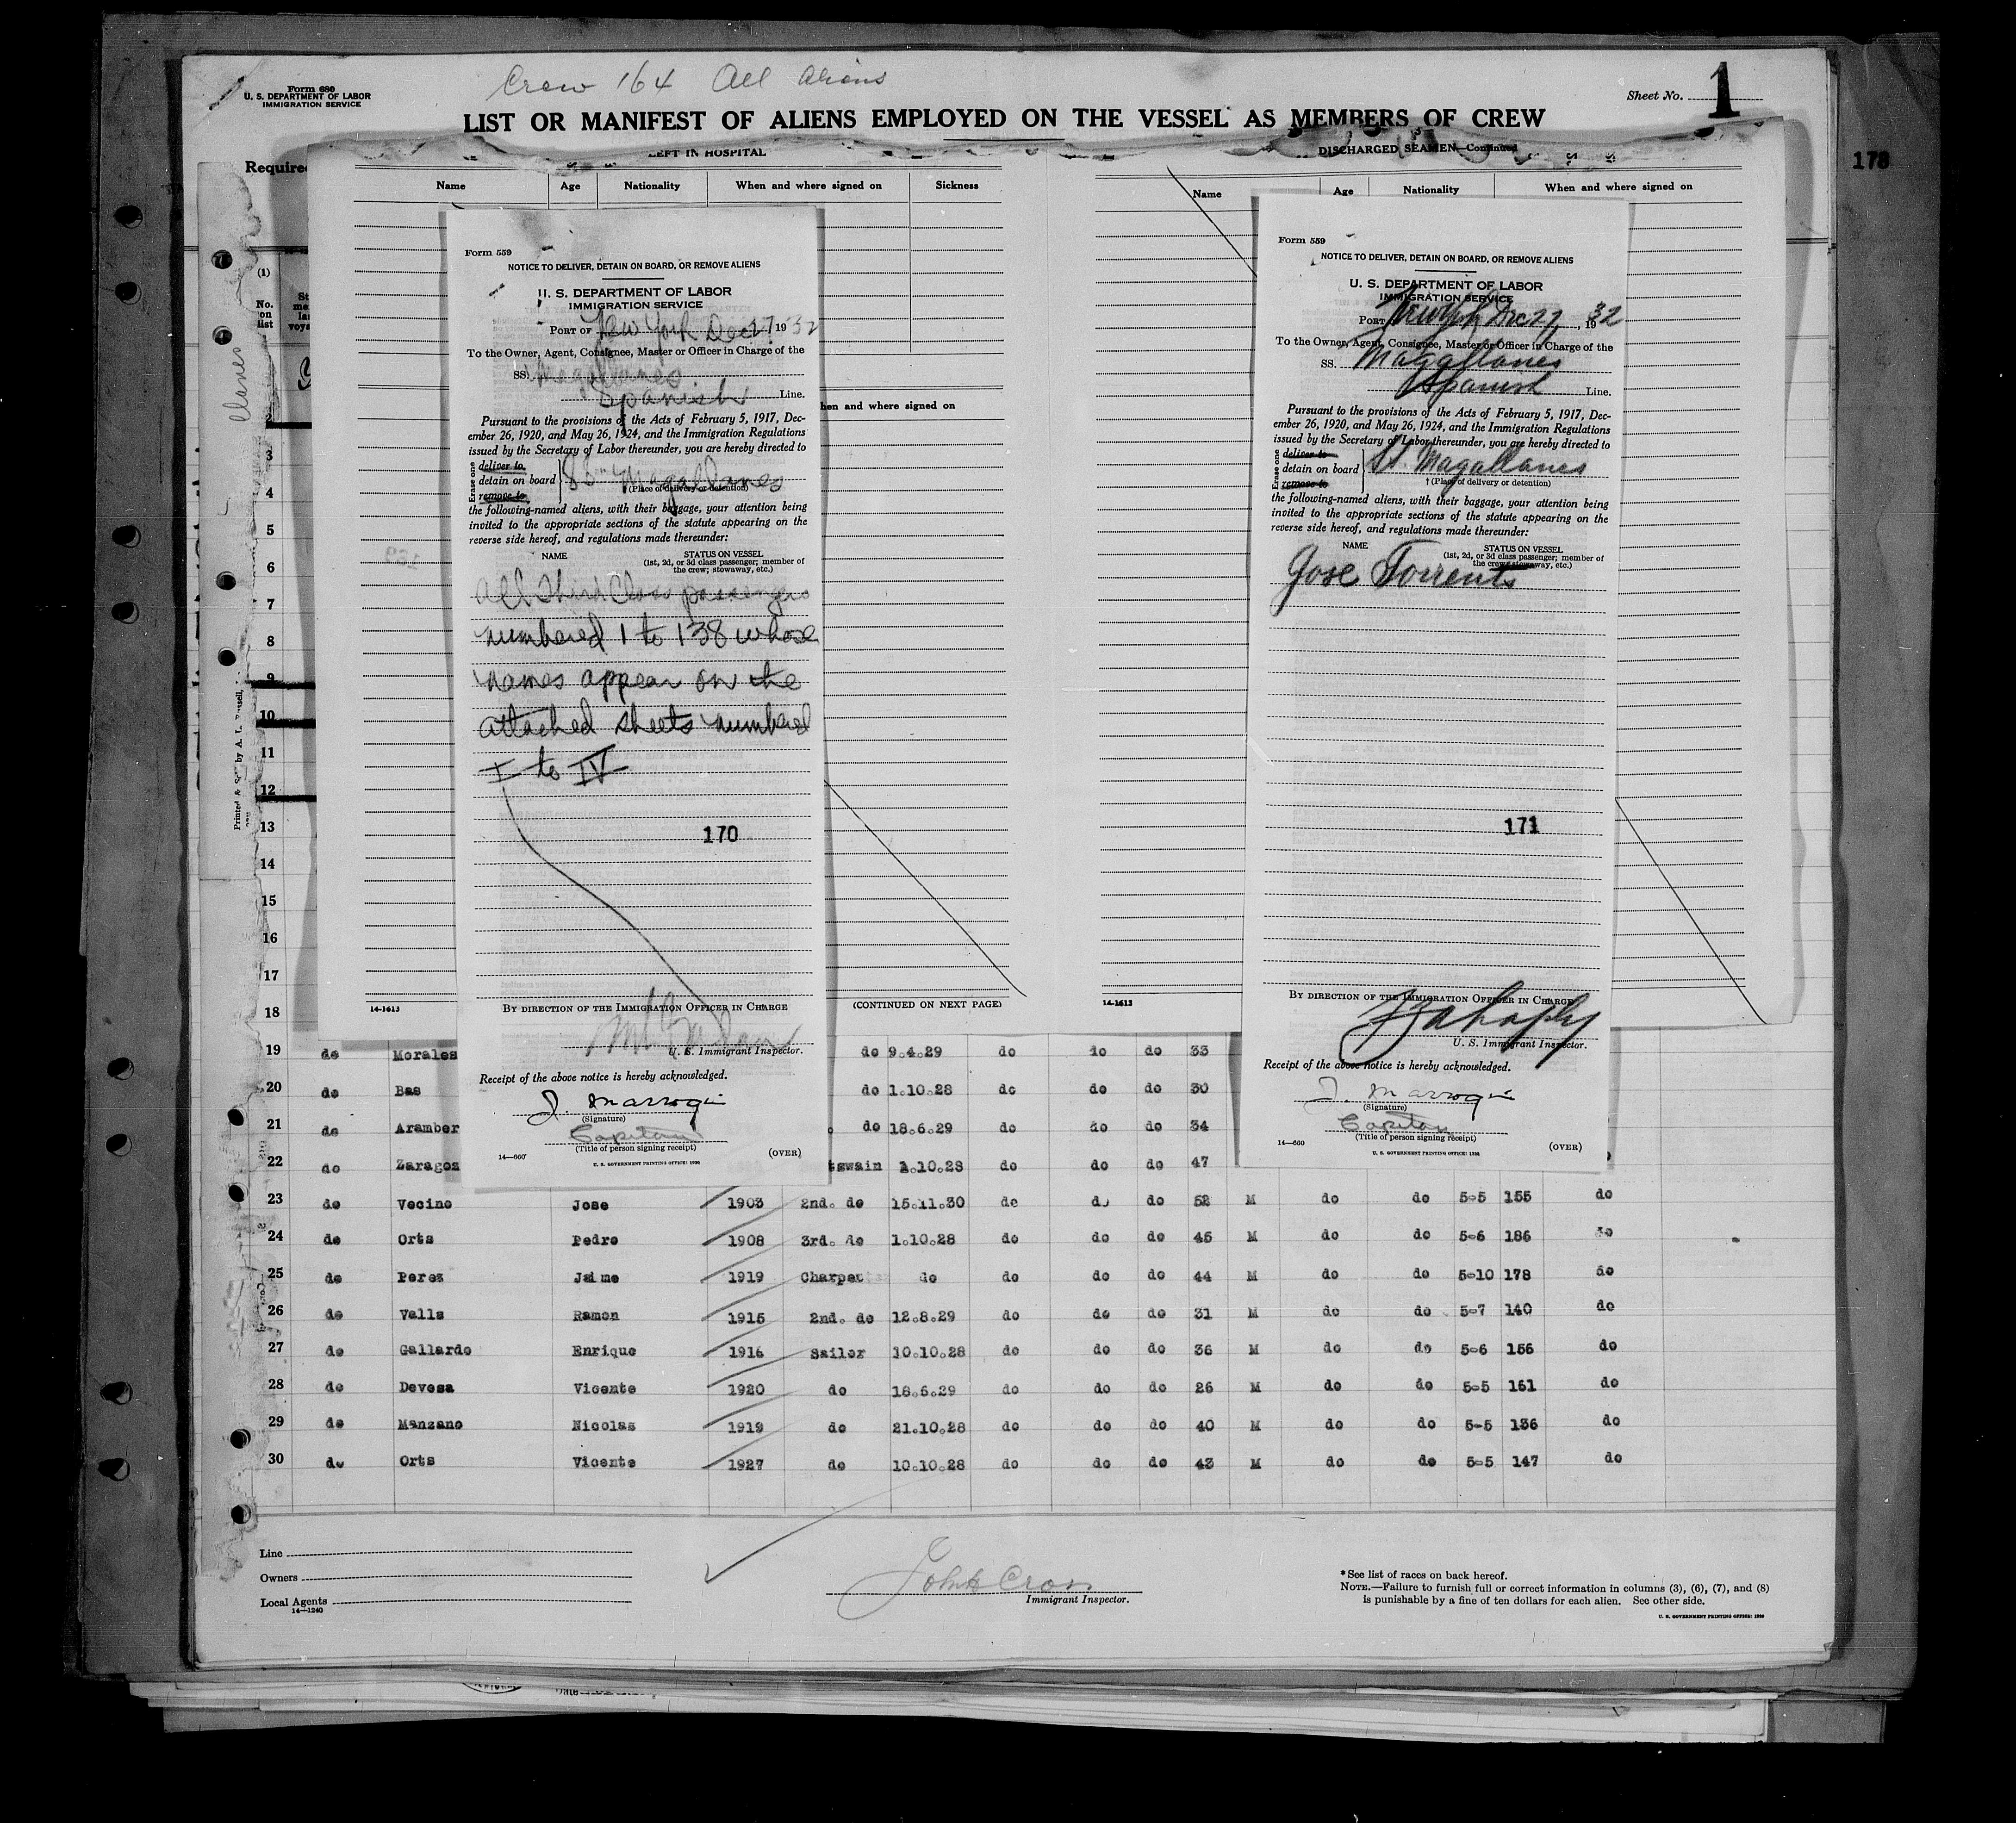 Crew 164 All Aliens
Form 680
U. S. DEPARTMENT OF LABOR
IMMIGRATION SERVICE
Sheet No. 1
LIST OR MANIFEST OF ALIENS EMPLOYED ON THE VESSEL AS MEMBERS OF CREW
178
Require
LEFT IN HOSPITAL
Name Age Nationality When and where signed on Sickness
DISCHARGED SEAMEN—Continued
Name Age Nationality When and where signed on
hen and where signed on
(1)
No. on list
Form 559
NOTICE TO DELIVER, DETAIN ON BOARD, OR REMOVE ALIENS
U. S. DEPARTMENT OF LABOR
IMMIGRATION SERVICE
PORT OF New York Dec 27 1932
To the Owner, Agent, Consignee, Master or Officer in Charge of the
SS. Magallanes
Spanish Line.
Pursuant to the provisions of the Acts of February 5, 1917, Dec-
ember 26, 1920, and May 26, 1924, and the Immigration Regulations
issued by the Secretary of Labor thereunder, you are hereby directed to
Erase one
deliver to
detain on board
remove to
Magallanes
(Place of delivery or detention)
the following-named aliens, with their baggage, your attention being
invited to the appropriate sections of the statute appearing on the
reverse side hereof, and regulations made thereunder:
NAME STATUS ON VESSEL
(1st, 2d, or 3d class passenger; member of
the crew; stowaway, etc.)
All Third Class passengers
numbered 1 to 138 whose
names appear on the
attached sheets numbered
I to IV
170
BY DIRECTION OF THE IMMIGRATION OFFICER IN CHARGE
U. S. Immigrant Inspector.
Receipt of the above notice is hereby acknowledged.
J. Marroqin
(Signature)
Capitan
(Title of person signing receipt)
14—660 (OVER)
U. S. GOVERNMENT PRINTING OFFICE: 1930
Form 559
NOTICE TO DELIVER, DETAIN ON BOARD, OR REMOVE ALIENS
U. S. DEPARTMENT OF LABOR
IMMIGRATION SERVICE
PORT New York Dec 27, 1932
To the Owner, Agent, Consignee, Master or Officer in Charge of the
SS. Magallanes
Spanish Line.
Pursuant to the provisions of the Acts of February 5, 1917, Dec-
ember 26, 1920, and May 26, 1924, and the Immigration Regulations
issued by the Secretary of Labor thereunder, you are hereby directed to
Erase one
deliver to
detain on board
remove to
Magallanes
† (Place of delivery or detention)
the following-named aliens, with their baggage, your attention being
invited to the appropriate sections of the statute appearing on the
reverse side hereof, and regulations made thereunder:
NAME STATUS ON VESSEL
(1st, 2d, or 3d class passenger; member of
the crew; stowaway, etc.)
Jose Torrents
171
BY DIRECTION OF THE IMMIGRATION OFFICER IN CHARGE
U. S. Immigrant Inspector.
Receipt of the above notice is hereby acknowledged.
J. Marroqin
(Signature)
Capitan
(Title of person signing receipt)
14—660 (OVER)
U. S. GOVERNMENT PRINTING OFFICE: 1930
14-1613 (CONTINUED ON NEXT PAGE) 14-1613
3
4
5
6
7
8
9
10
11
12
13
14
15
16
17
18
19 do Morales do 9.4.29 do do do 33
20 do Bas do 1.10.28 do do do 30
21 do Aramber do 18.6.29 do do do 34
22 do Zaragoz tswain 1.10.28 do do do 47
23 do Vecino Jose 1903 2nd. do 15.11.30 do do do 52 M do do 5-5 155 do
24 do Orts Pedro 1908 3rd. do 1.10.28 do do do 45 M do do 5-6 186 do
25 do Perez Jaime 1919 Charpen do do do do 44 M do do 5-10 178 do
26 do Valls Ramon 1915 2nd. do 12.8.29 do do do 31 M do do 5-7 140 do
27 do Gallardo Enrique 1916 Sailor 10.10.28 do do do 36 M do do 5-6 156 do
28 do Devesa Vicente 1920 do 18.6.29 do do do 26 M do do 5-5 151 do
29 do Manzano Nicolas 1919 do 21.10.28 do do do 40 M do do 5-5 136 do
30 do Orts Vicente 1927 do 10.10.28 do do do 43 M do do 5-5 147 do
Line
Owners
Local Agents
14—1240
John Cross
Immigrant Inspector.
* See list of races on back hereof.
NOTE.—Failure to furnish full or correct information in columns (3), (6), (7), and (8)
is punishable by a fine of ten dollars for each alien. See other side.
U. S. GOVERNMENT PRINTING OFFICE: 1930